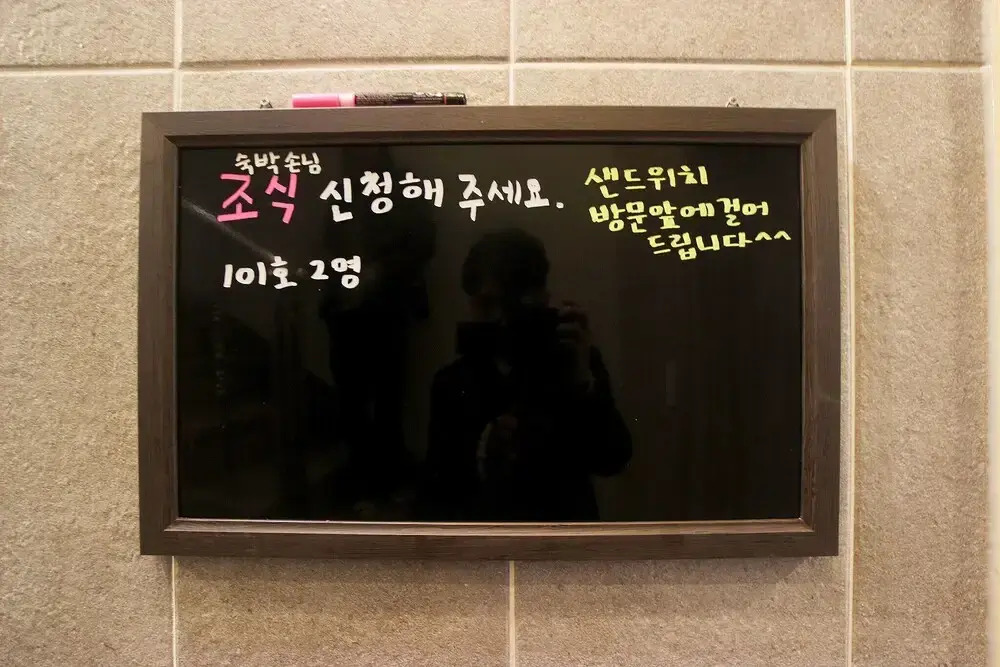 숙박손님
조식 신청해 주세요.
101호 2명
샌드위치
방문앞에걸어
드립니다^^